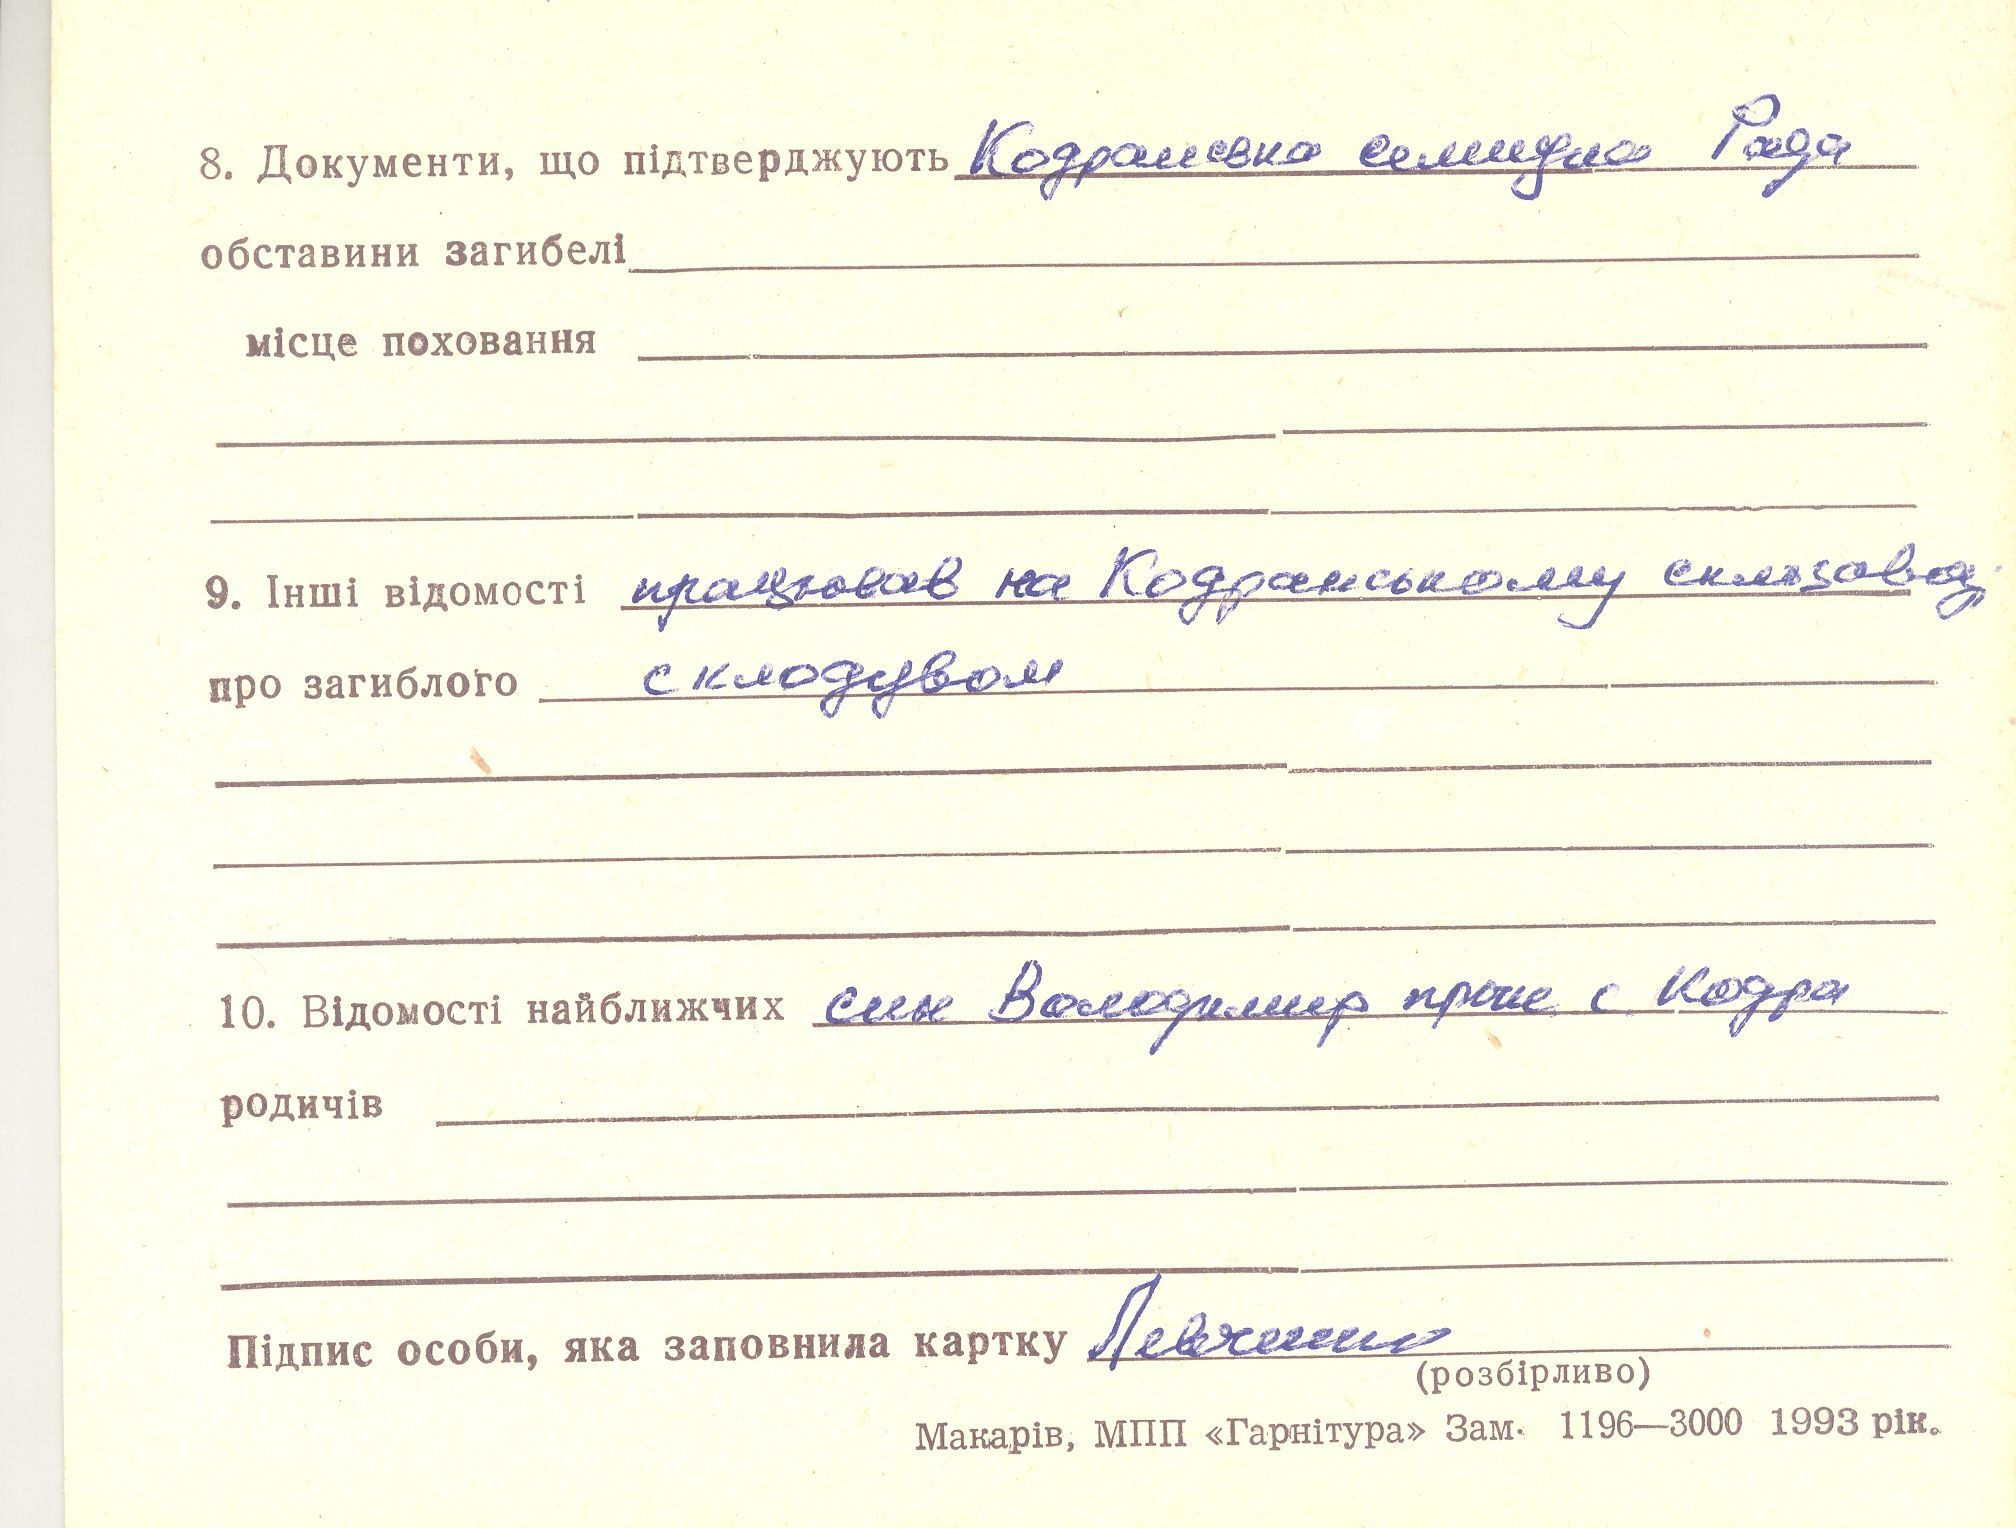 8. Документи, що підтверджують Кодранська селищна Рада
обставини загибелі
місце поховання
9. Інші відомості працював на Кодранському склозаводі
про загиблого склодувом
10. Відомості найближчих син Володимир прож с. Кодра
родичів
Підпис особи, яка заповнила картку Левченко
(розбірливо)
Макарів, МПП «Гарнітура» Зам. 1196—3000 1993 рік.